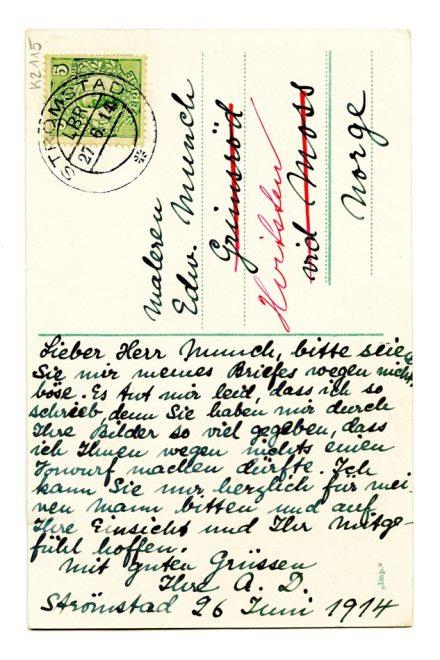 K2115
5
STRÖMSTAD
LBR
27.6.14
maleren
Edw. Munch
Grimsröd
Hvitsten
vid Moss
Norge
Lieber Herr Munch, bitte seien
Sie mir meines Briefes wegen nicht
böse. Es tut mir leid, dass ich so
schrieb, denn Sie haben mir durch
Ihre Bilder so viel gegeben, dass
ich Ihnen wegen nichts einen
Vorwurf machen dürfte. Ich
kann Sie nur herzlich für mei-
nen Mann bitten und auf
Ihre Einsicht und Ihr Mitge-
fühl hoffen.
Mit guten Grüssen
Ihre A. D.
Strömstad 26 Juni 1914
„Imp.“